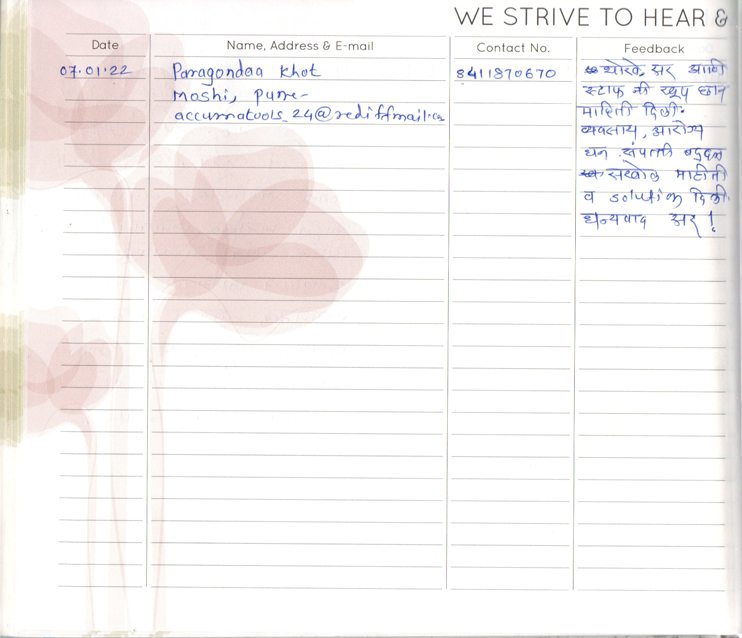 WE STRIVE TO HEAR &
Date Name, Address & E-mail Contact No. Feedback
07.01.22 Paragondaa Khot 8411870670 थोरवे सर आणि
moshi, pune- स्टाफ नी खूप छान
accurnatools_24@rediffmail.co माहिती दिली.
व्यवसाय, आरोग्य
धन संपत्ती बद्दल
सखोल माहीती
व solution दिली.
धन्यवाद सर !